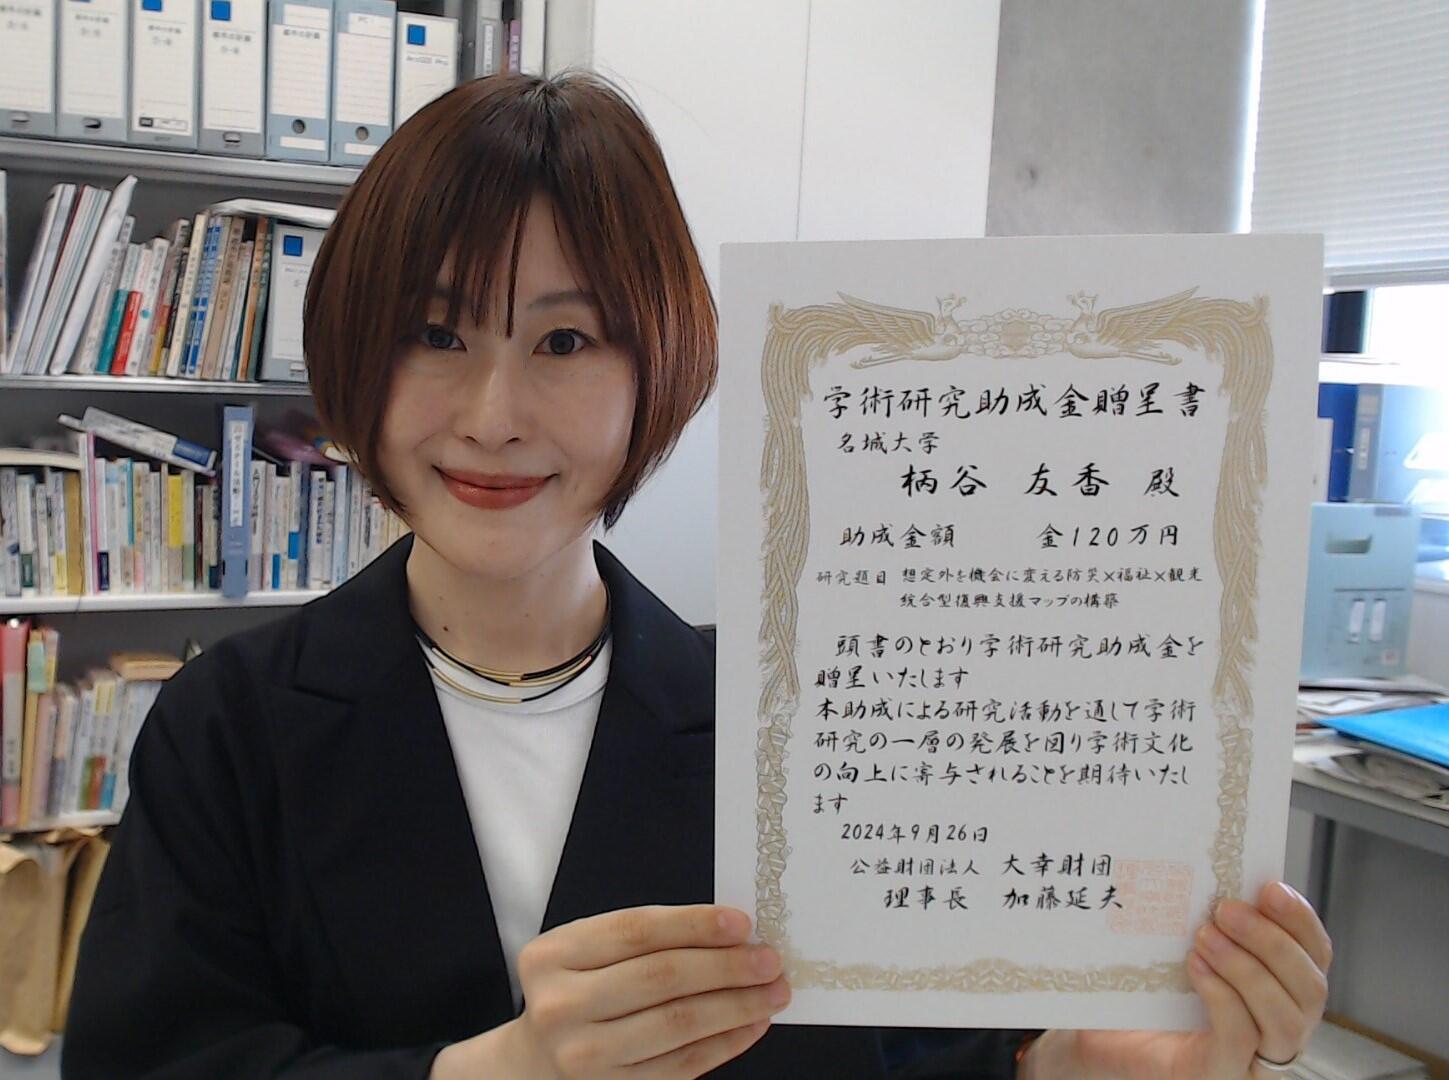 学術研究助成金贈呈書
名城大学
柄谷 友香 殿
助成金額 金120万円
研究題目 想定外を機会に変える防災×福祉×観光
統合型復興支援マップの構築
頭書のとおり学術研究助成金を
贈呈いたします
本助成による研究活動を通して学術
研究の一層の発展を図り学術文化
の向上に寄与されることを期待いたし
ます
2024年9月26日
公益財団法人 大幸財団
理事長 加藤延夫
ArcGIS Pro